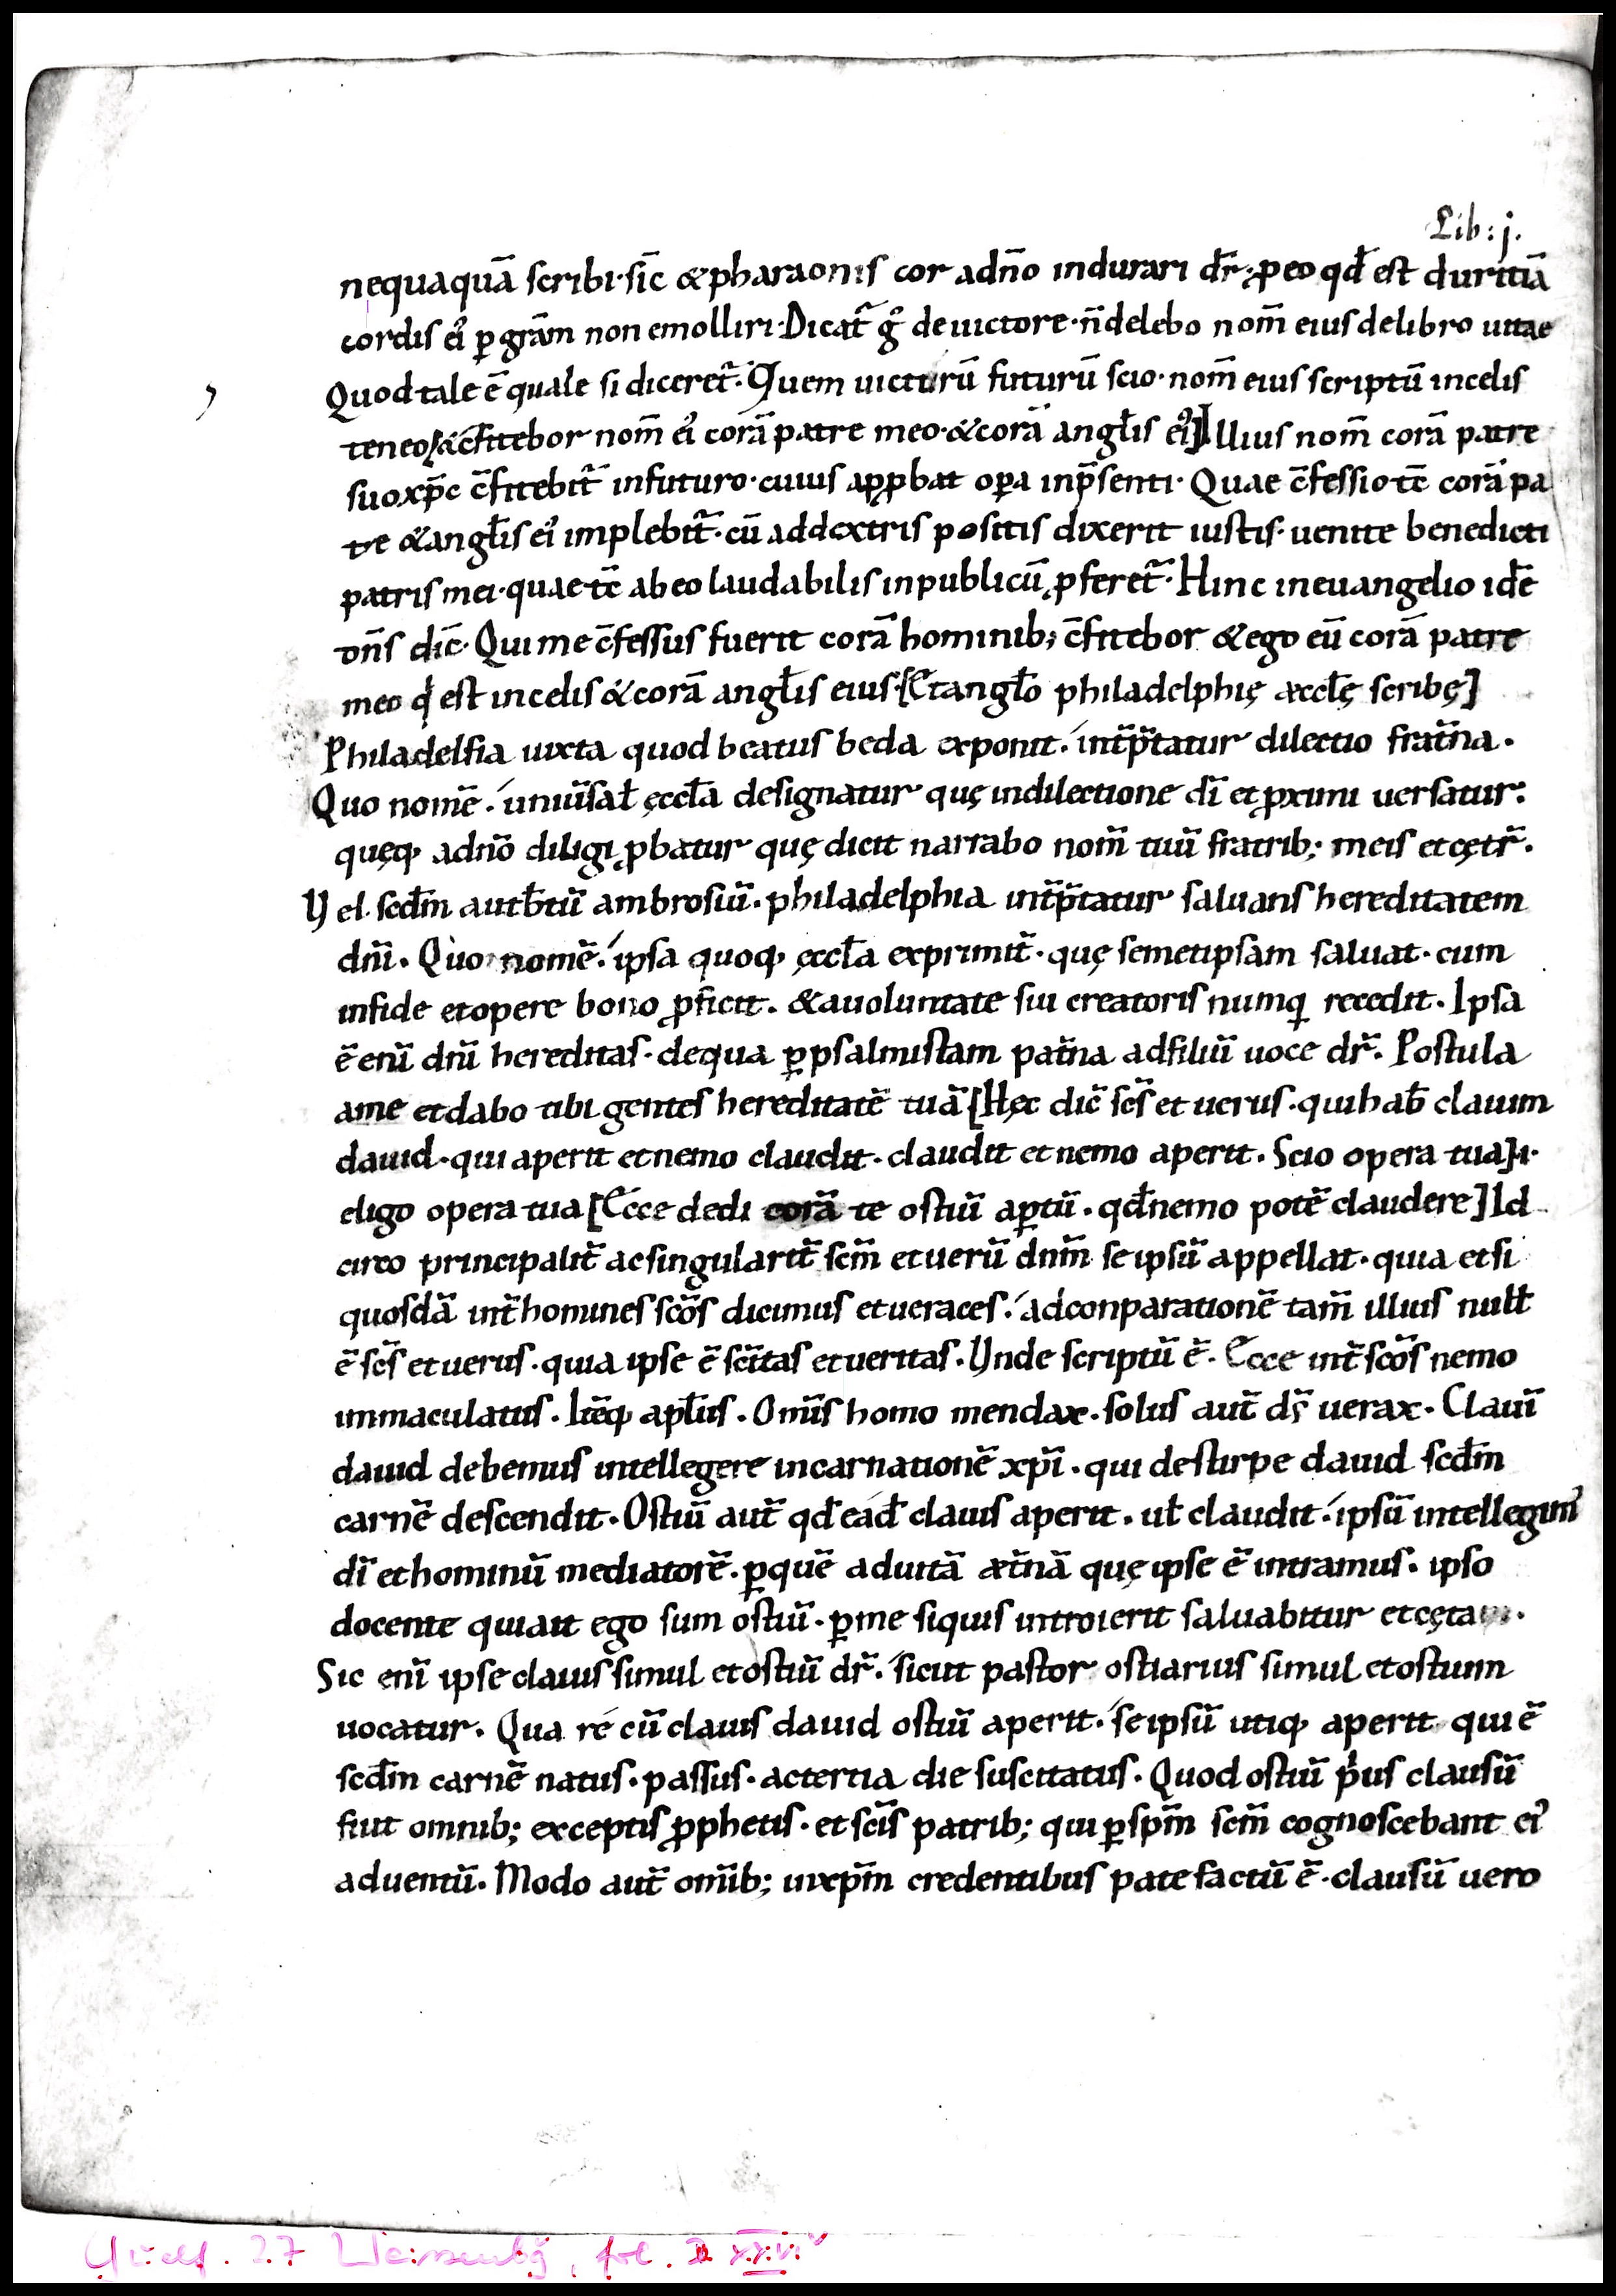 Lib: j.
nequaquā scribi· sic̄ & pharaonis cor adn̄o indurari dr̄· ꝓ eo qđ est duritiā
cordis ei᾽ ꝑ grām non emolliri· Dicat᷑ gͦ de uictore· n̄ delebo nom̄ eius de libro uitae
Quod tale ē quale si diceret᷑· Quem uicturū futurū scio· nom̄ eius scriptū incelis
teneo [& c̄fitebor nom̄ ei᾽ corā patre meo· & corā angl̄is ei᾽] Illius nom̄ corā patre
suo xp̄c c̄fitebit᷑ infuturo· cuius apꝓbat oꝑa inp̄senti· Quae c̄fessio tc̄ corā pa
tre & angl̄is ei᾽ implebit᷑· cū addextris positis dixerit iustis· uenite benedicti
patris mei· quae tc̄ ab eo laudabilis inpublicū ꝓferet᷑· Hinc ineuangelio idē
dn̄s dic̄· Qui me c̄fessus fuerit corā hominib; c̄fitebor & ego eū corā patre
meo qͥ est incelis & corā angl̄is eius· [Et angl̄o philadelphię æccl̄ę scribę]
Philadelfia iuxta quod beatus beda exponit· int̄p̄tatur dilectio frat̄na·
Quo nomē· uniūsal̄ ęccl̄a designatur quę indilectione dī et ꝓximi uersatur:
quęq; adn̄o diligi ꝓbatur quę dicit narrabo nom̄ tuū fratrib; meis et cęt̄r·
Vel scdm̄ autb̄tū ambrosiū· philadelphia int̄p̄tatur saluans hereditatem
dn̄i· Quo nomē· ipsa quoq; ęccl̄a exprimit᷑· quę semetipsam saluat· cum
infide et opere bono ꝓficit· & auoluntate sui creatoris numq̄ recedit· Ipsa
ē enī dn̄i hereditas· dequa ꝑ psalmistam pat̄na adfiliū uoce dr̄· Postula
ame et dabo tibi gentes hereditatē tuā [Hęc dic̄ sc̄s et uerus· qui hab̄ clauim
dauid· qui aperit et nemo claudit· claudit et nemo aperit· Scio opera tua] ·i·
eligo opera tua [Ecce dedi corā te ostiū aꝑtū· qđ nemo potē claudere] Id
circo principalit̄ ac singularit̄ sc̄m et uerū dnm̄ se ipsū appellat· quia et si
quosdā int̄ homines sc̄os dicimus et ueraces· adconparationē tam̄ illius null̄
ē sc̄s et uerus· quia ipse ē sc̄itas et ueritas· Vnde scriptū ē· Ecce int̄ sc̄os nemo
immaculatus· Itēq; apl̄us· Omīs homo mendax· solus aut̄ ds̄ uerax· Clauī
dauid debemus intellegere incarnationē xpī· qui destirpe dauid scdm̄
carnē descendit· Ostiū aut̄ qđ eađ clauis aperit· ul̄ claudit· ipsū intellegim᾽
dī et hominū mediatorē· ꝑ quē aduitā æt̄nā quę ipse ē intramus· ipso
docente qui ait ego sum ostiū· ꝑ me siquis introierit saluabitur et cęta
Sic enī ipse clauis simul et ostiū dr̄· sicut pastor ostiarius simul et ostium
uocatur· Qua re cū clauis dauid ostiū aperit· se ipsū utiq; aperit qui ē
scdm̄ carnē natus· passus· ac tertia die suscitatus· Quod ostiū pͥus clausū
fuit omnib; exceptis ꝓphetis· et sc̄is patrib; qui ꝑ spm̄ sc̄m cognoscebant ei᾽
aduentū· Modo aut̄ om̄ib; inxpm̄ credentibus patefactū ē· clausū uero
Guelf. 27 Weissenbg, fol. xxvi v